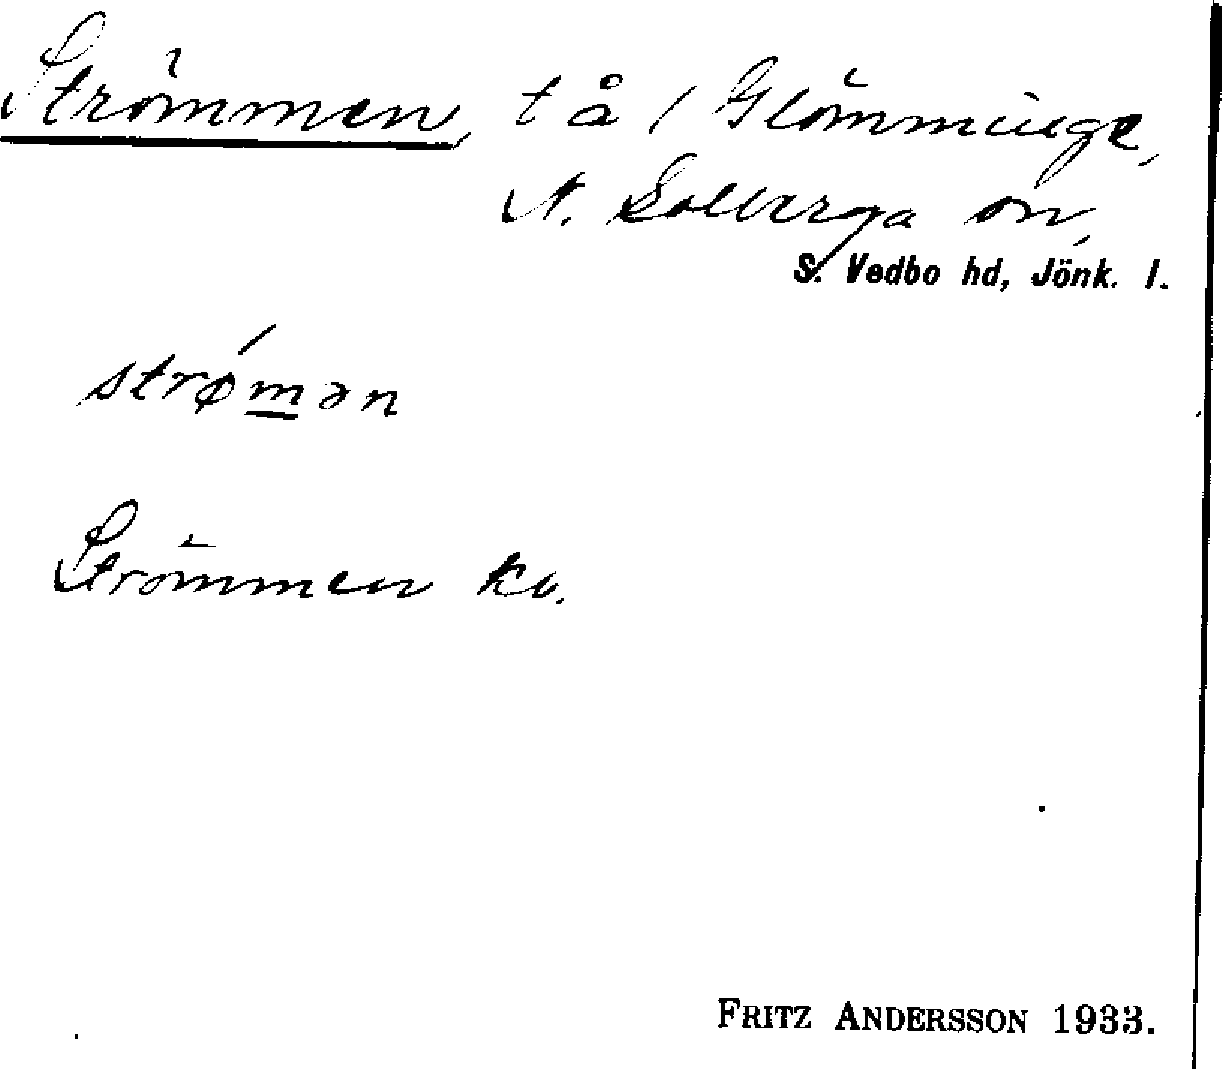 Strömmen, t å / Glömminge,
N. Solberga sn,
S. Vedbo hd, Jönk. l.
strǿmən
Strömmen ka.
FRITZ ANDERSSON 1933.